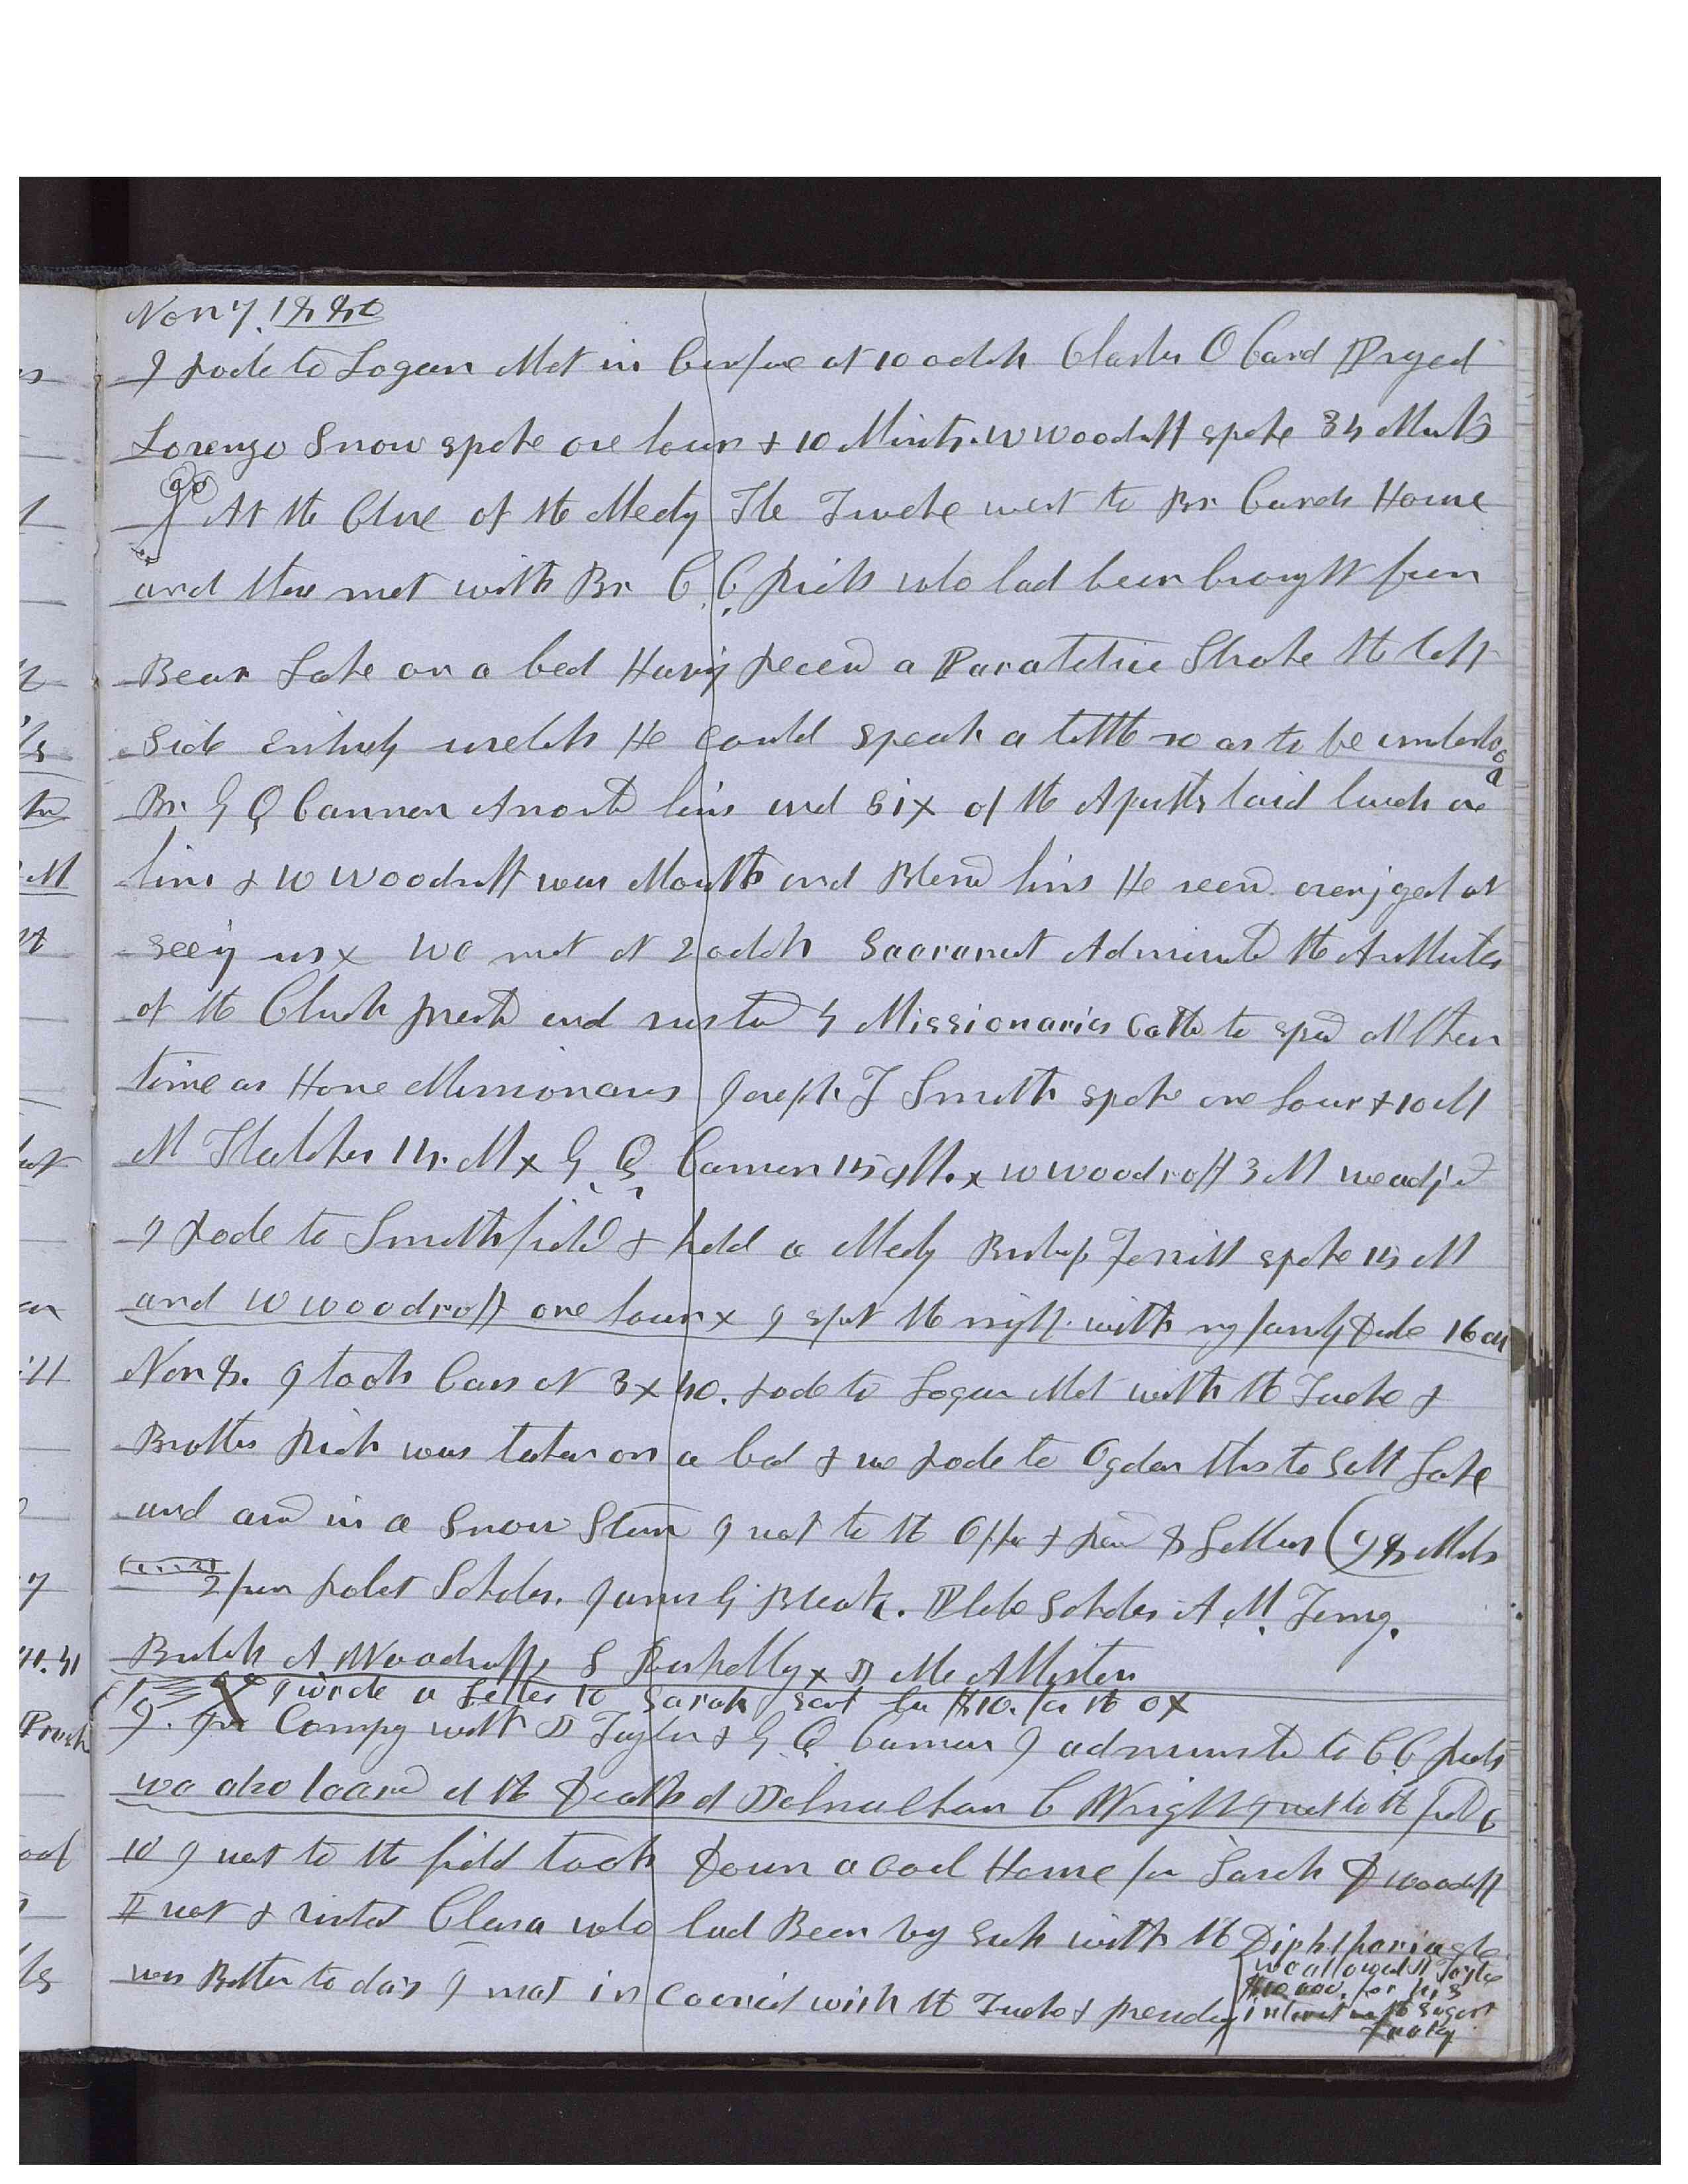 Nov 7. 1880
I rode to Logan Met in Confre at 10 oclok Charles O Card Prayed
Lorenzo Snow spoke one hour & 10 Minuts. W Woodruff spoke 35 Mints
At the Close of the Meeting The Twelve went to Br Cards Home
and there met with Br C. C. Rich who had been brought from
Bear Lake on a bed Having Receivd a Paraletick Stroke the left
side entirely useless He could speak a little so as to be understood
Br G Q Cannon Anointd him and six of the Apostles laid hands on
him & W Woodruff was Mouth and Blessd him He seemd overjoyed at
seeing us x We met at 2 oclok Sacrament Administd the Authorites
of the Church presentd and sustaind 5 Missionaries Called to spend all their
time as Home Missionaries Joseph F Smith spoke one hour & 10 M
M Thatcher 15. M x G Q Cannon 15 M. x W Woodruff 3 M we adjd
I rode to Smithfield & held a Meeting Bishop Ferrill spoke 15 M
and W Woodruff one hour x I spent the night with my family Dist 16 m
Nov 8. I took Cars at 3 x 40. rode to Logan Met with the Twelve &
Brother Rich was taken on a bed & we rode to Ogden thence to Salt Lake
and arivd in a Snow Storm I went to the Office & recd 8 Letters (98 Mils
2 from Robert Scholes. James G Bleak. Phebe Scholes A. M. Tenny.
Bulah A Woodruff, S Runhelly x D Mc Allister
I wrote a Letter to Sarah sent her $10. for the ox
9. In Company with J Taylor & G Q Cannon I administd to C C Rich
we also heard of the Death of Johnathan C Wright I went to the field
10 I went to the field took down a cool Home for Sarah D Woodruff
II went & visited Clara who had Been vry sick with the Diphtheria she
was Better to day I met in Council with the Twelve & presidency
we allowed J Taylor
$10,000. for his
interest in the Sugar